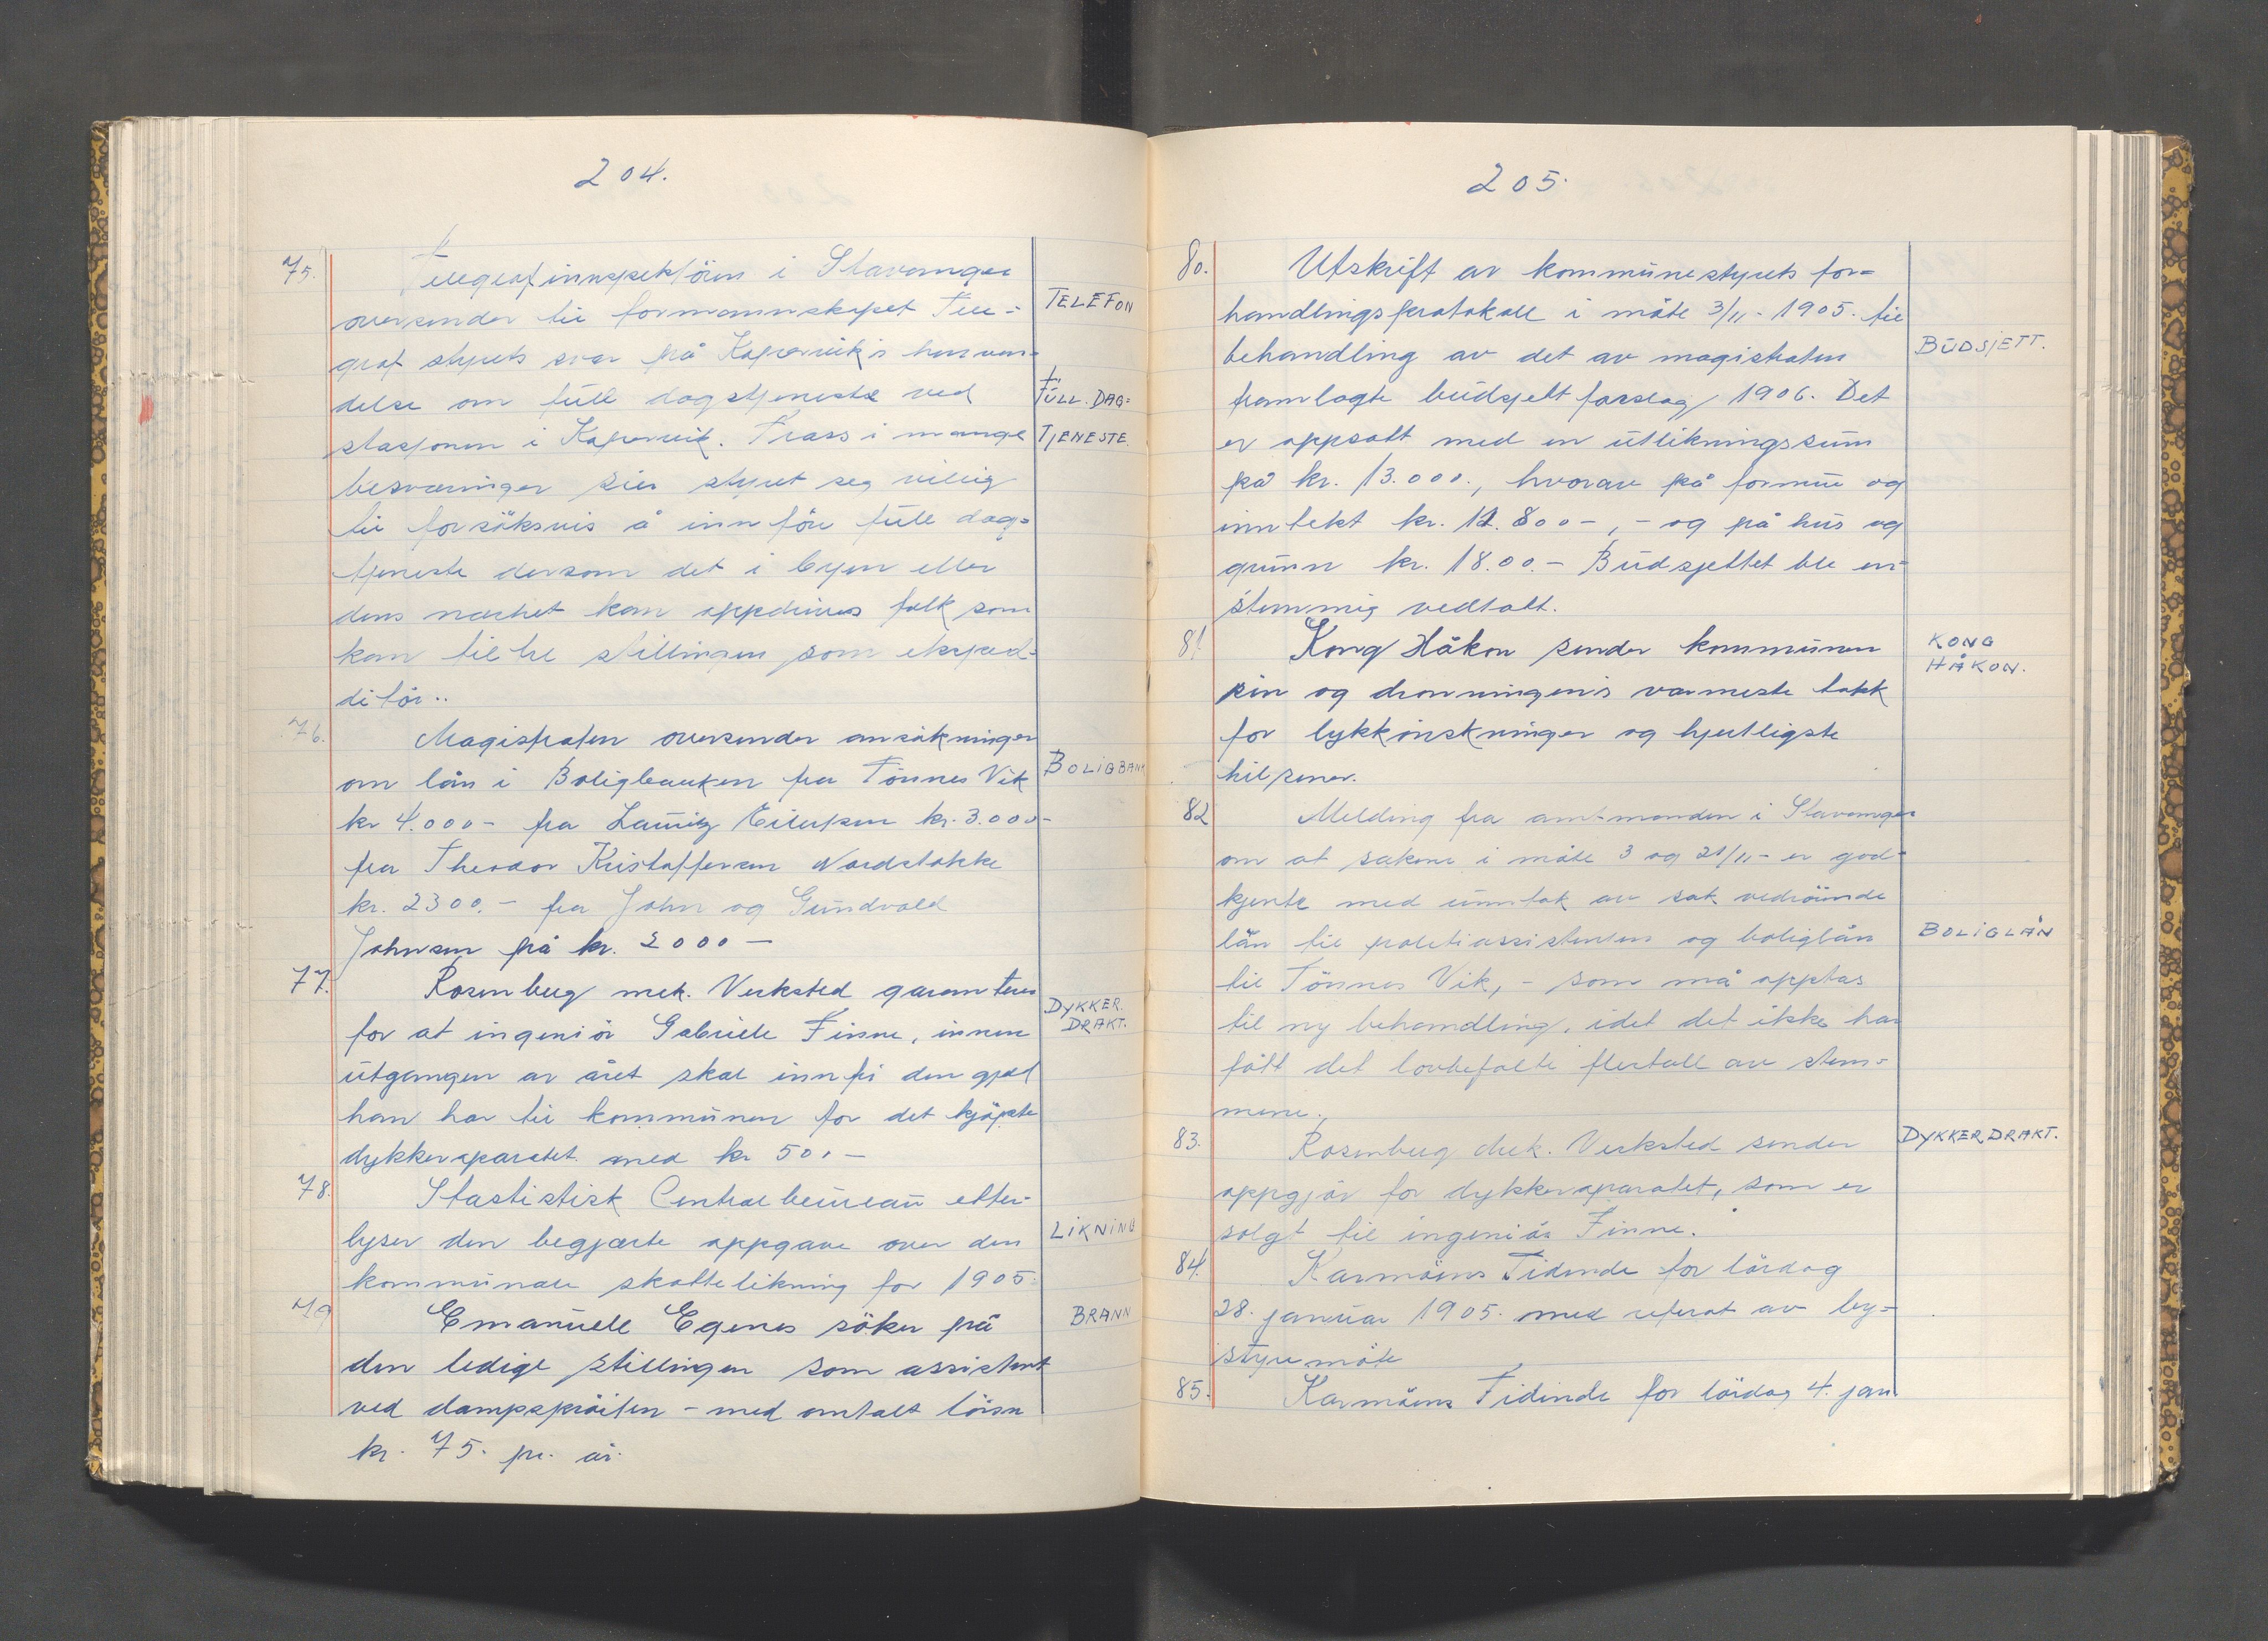 204.
75. Telegrafinnspektören i Stavanger
oversender til formannskapet Tele-
graf styrets svar på Kopervik's henven-
delse om full dagstjeneste ved
stasjonen i Kopervik. Trass i mange
besværinger sier styret seg villig
til forsöksvis å innföre full dag=
tjeneste dersom det i byen eller
dens nærhet kan oppdrives folk som
kan tiltre stillingen som eksped-
ditör..
TELEFON
FULL. DAG=
TJENESTE.
76. Magistraten oversender ansökninger
om lån i Boligbanken fra Tönnes Vik
kr 4.000- fra Lauritz Eilertsen kr. 3.000-
fra Theodor Kristoffersen Nordstokke
kr. 2300.- fra John og Gundvald
Johnsen på kr. 2000 -
BOLIGBANK
77. Rosenberg mek. Verksted garanterer
for at ingeniör Gabriele Finne, innen
utgangen av året skal innfri den gjeld
han har til kommunen for det kjöpte
dykkeraparatet med kr 50.-
DYKKER.
DRAKT.
78. Stastistisk Centralbeureau etter-
lyser den begjærte oppgave over den
kommunale skattelikning for 1905.
LIKNING
79 Emanuell Egenes söker på
den ledige stillingen som assistent
ved dampspröiten - med omtalt lönn
kr. 75. pr. år.
BRANN
205.
80. Utskrift av kommunestyrets for=
handlingsprotokoll i möte 3/11- 1905. til
behandling av det av magistraten
framlagte budsjett forslag 1906. Det
er oppsatt med en utlikningssum
på kr. 13.000., hvorav på formue og
inntekt kr. 11.800-,- og på hus og
grunn kr. 18.00.- Budsjettet ble en-
stemmig vedtatt.
BUDSJETT.
81 Kong Håkon sender kommunen
sin og dronningens varmeste takk
for lykkönskninger og hjertligste
hilsener.
KONG
HÅKON.
82 Melding fra amtmanden i Stavanger
om at sakene i möte 3 og 21/11- er god-
kjente med unntak av sak vedrörende
lån til politiassistenten og boliglån
til Tönnes Vik, - som må opptas
til ny behandling, idet det ikke har
fått det lovbefalte flertall av stem-
mene.
BOLIGLÅN
83. Rosenberg Mek. Verksted sender
oppgjör for dykkeraparatet, som er
solgt til ingeniör Finne.
DYKKER.DRAKT.
84. Karmöens Tidende for lördag
28. januar 1905. med referat av by-
styremöte
85. Karmöens Tidinde for lördag 4. jan.